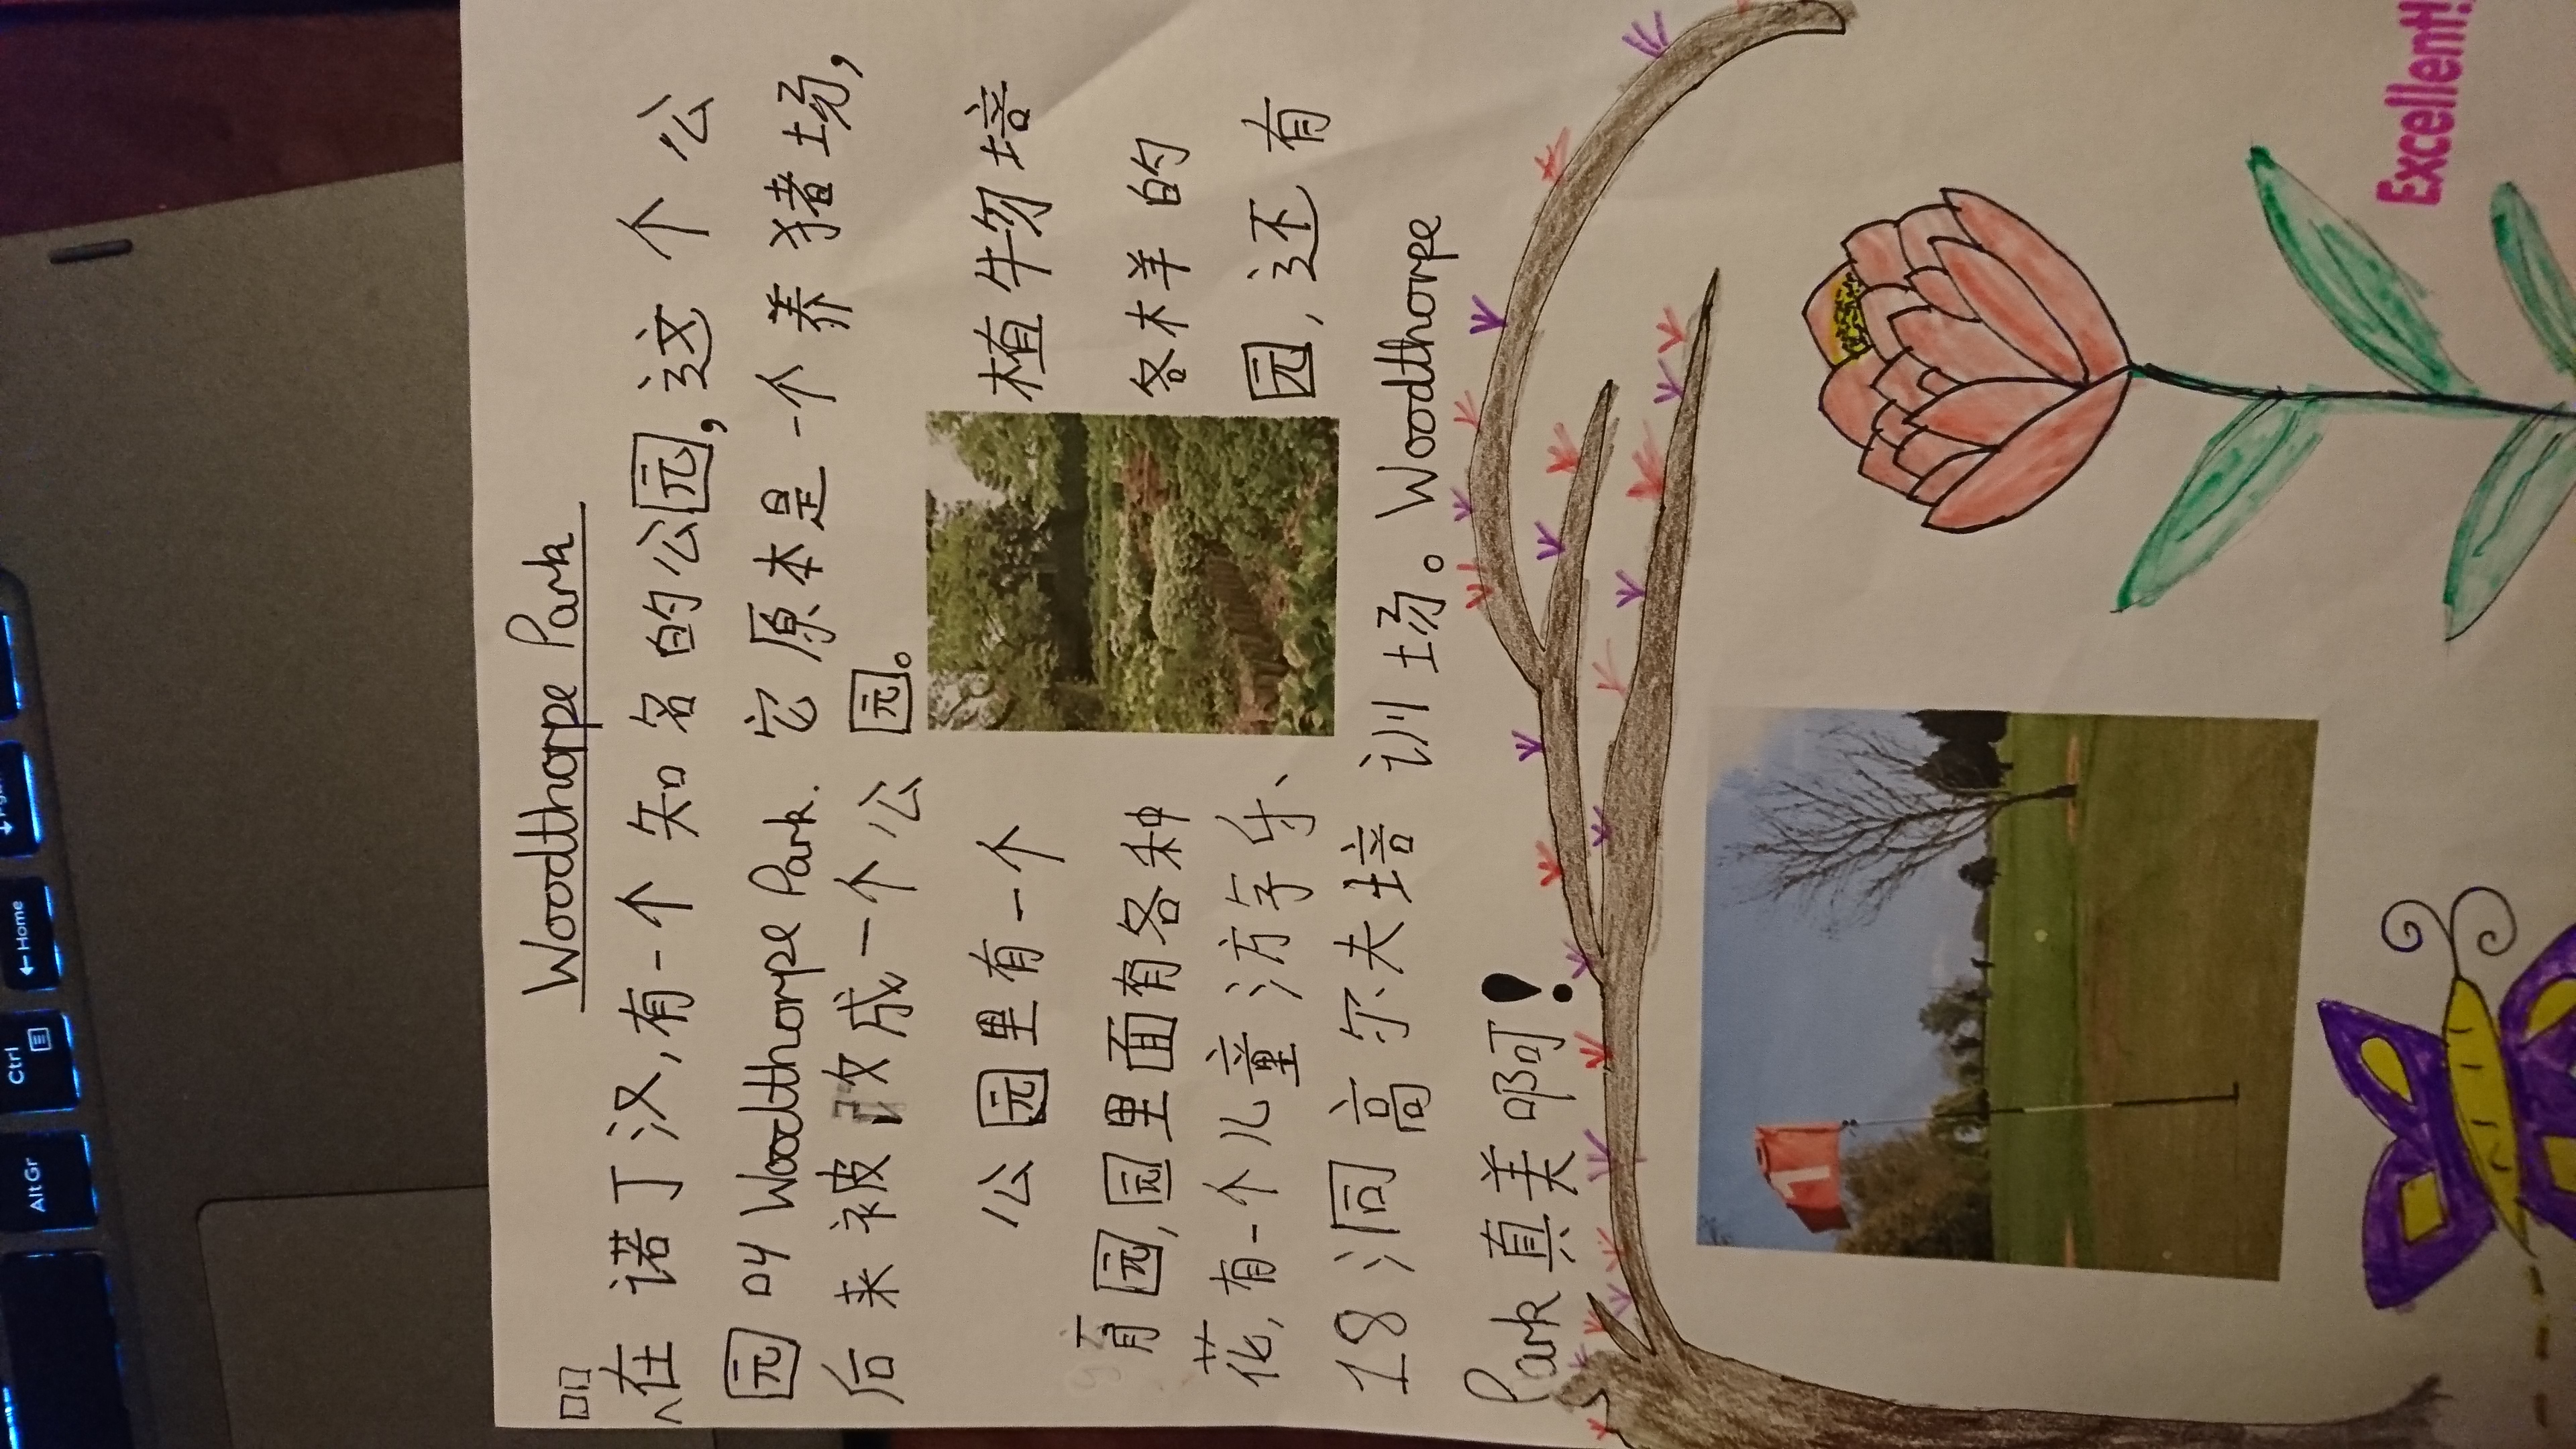 Alt Gr
Ctrl
← Home
Woodthorpe Park
□□
在诺丁汉,有一个知名的公园,这个公
园叫 Woodthorpe Park. 它原本是一个养猪场,
后来被改成一个公园。
公园里有一个植物培
育园,园里面有各种各样的
花,有一个儿童游乐园,还有
18洞高尔夫培训场。Woodthorpe
Park真美啊!
1
Excellent!